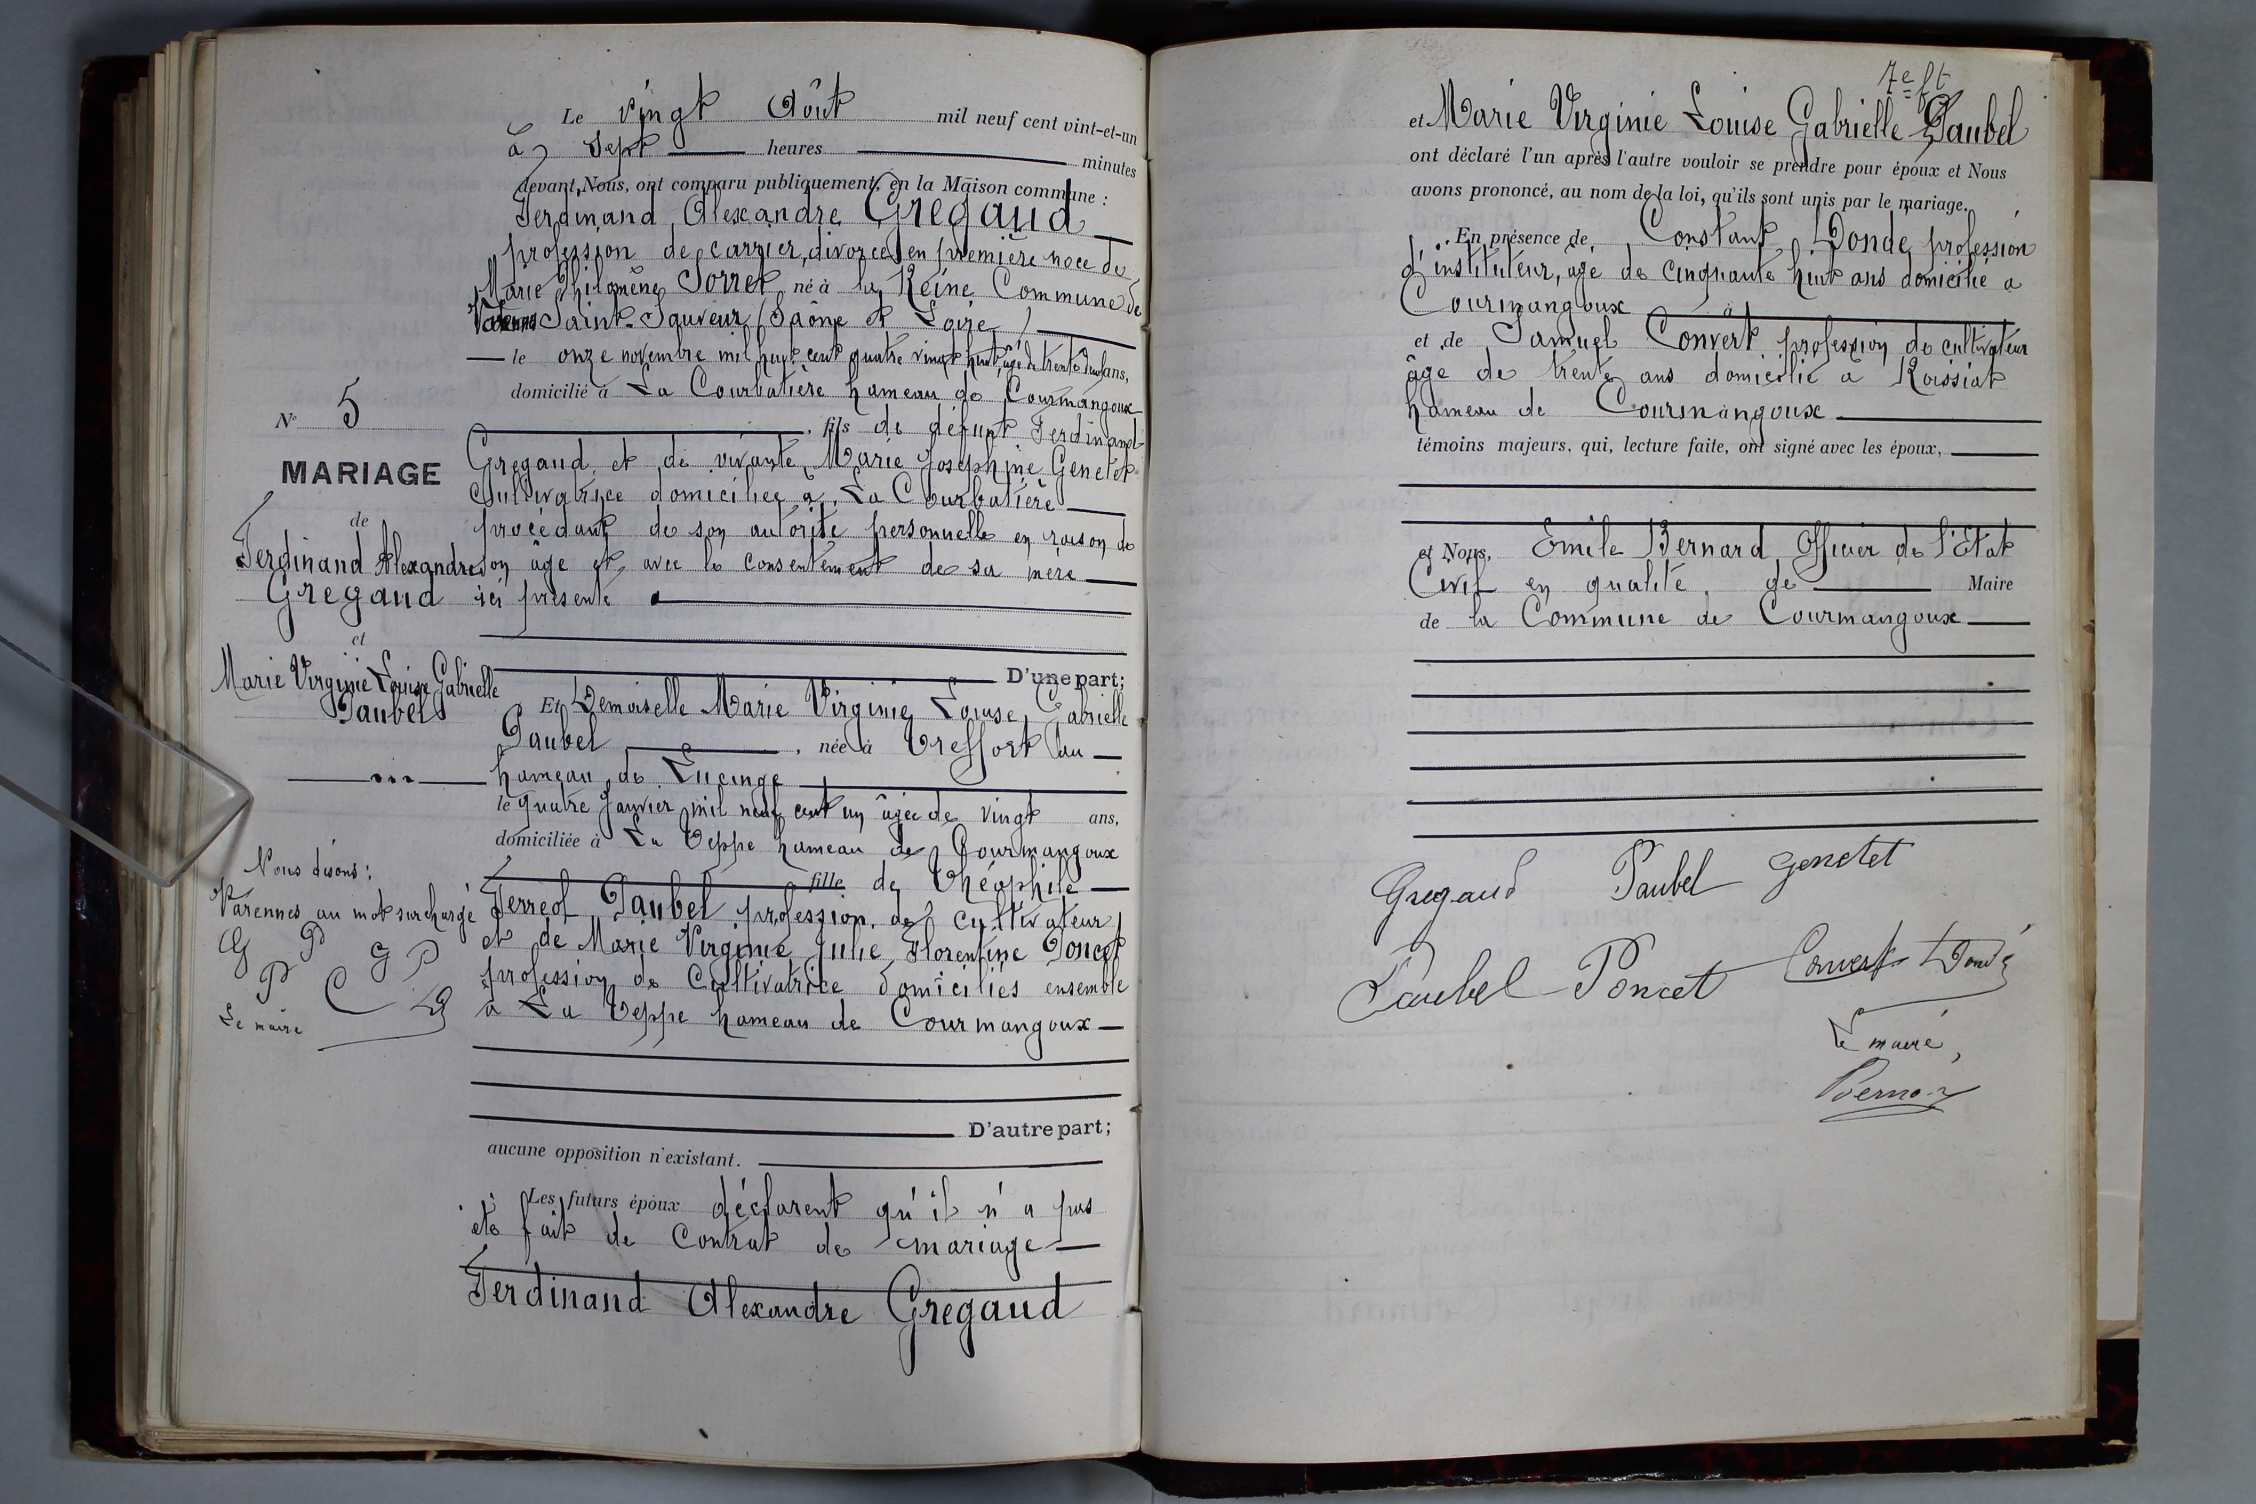 Le vingt Août mil neuf cent vint-et-un
à sept heures minutes
devant Nous, ont comparu publiquement, en la Maison commune :
Ferdinand Alexandre Gregaud
profession de carrier, divorcé en première noce de
Marie Philomène Sorret né à la Reine Commune de
Saint-Sauveur (Saône et Loire)
le onze novembre mil huit cent quatre vingt huit, âgé de trente deux ans,
domicilié à La Courbatière hameau de Courmangoux
, fils de défunt Ferdinand
Gregaud et de vivante Marie Joséphine Genetet
Cultivatrice domiciliée à La Courbatière
procédant de son autorité personnelle en raison de
son âge et avec le consentement de sa mère
ici présente
D'une part;
Et Demoiselle Marie Virginie Louise Gabrielle
Paubel , née à Treffort au
hameau de Lucinge
le quatre Janvier mil neuf cent un âgée de vingt ans,
domiciliée à La Teppe hameau de Courmangoux
fille de Théophile
Ferreol Paubel profession de cultivateur
et de Marie Virginie Julie Florentine Poncet
profession de Cultivatrice domiciliés ensemble
à La Teppe hameau de Courmangoux
D'autre part;
aucune opposition n'existant.
Les futurs époux déclarent qu'il n'a pas
été fait de contrat de mariage
Ferdinand Alexandre Gregaud
N° 5
MARIAGE
de
Ferdinand Alexandre
Gregaud
et
Marie Virginie Louise Gabrielle
Paubel
Nous disons :
Varennes au mot surchargé
G P G P
P C D
Le maire
7e ft
et Marie Virginie Louise Gabrielle Paubel
ont déclaré l'un après l'autre vouloir se prendre pour époux et Nous
avons prononcé, au nom de la loi, qu'ils sont unis par le mariage.
En présence de Constant Donde profession
d'instituteur, âgé de cinquante huit ans domicilié à
Courmangoux
et de Samuel Convert profession de cultivateur
âgé de trente ans domicilié à Roissiat
hameau de Courmangoux
témoins majeurs, qui, lecture faite, ont signé avec les époux,
et Nous, Emile Bernard Officier de l'Etat
Civil en qualité de Maire
de la Commune de Courmangoux
Gregaud Paubel Genetet
Paubel Poncet Convert Dondé
Le maire,
Bernard